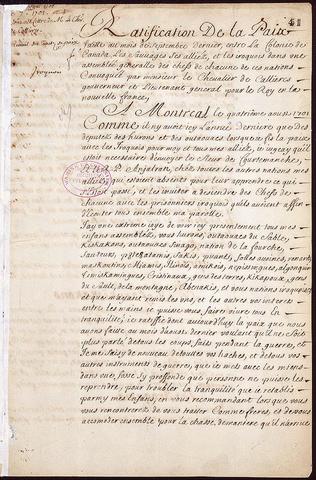 41
Ratification De la Paix
faite au mois de septembre dernier, entre La Colonie de
Canada, Les Sauvages ses alliéz, et les iroquois dans une
assemblée generalle des chefs de chacune de ces nations
Convoquéz par monsieur le Chevalier de Callieres
gouverneur et Lieutenant general pour le Roy en la
nouvelle france,
A Montreal le quatrieme aoust 1701
Comme il n'y avoit icy l'année Derniere que des
deputez des hurons et des outaouacs lorsque je fis la paix
avec les Iroquois pour moy et tous mes alliéz, je jugeay qu'il
estoit necessaire d'envoyer le sieur de Courtemanche,
et le R. P. Anjalran, chéz toutes les autres nations mes
alliéz qui estoient absents pour leur apprendre ce qui
s'estoit passé, et les inviter a descendre des Chefs de
chacune avec les prisonniers iroquois qu'ils avoient affin
d'écouter tous ensemble ma parolle.
J'ay une extreme joye de voir icy presentement tous mes
enfans assembléz, vous hurons, outaouacs du Sable,
Kiskakons, outaouacs Sinago, nation de la fourche,
Sauteurs, pouteouatamis, Sakis, puants, folles avoines, renards,
maskoutins, Miamis, Ilinois, amikois, nepissingues, algonquins,
Temiskamingues, Cristinaux, gens des terres, Kikapoux, gens
du Sault, de la montagne, Abenakis, et vous nations iroquoises
et que m'ayant remis les uns, et les autres vos interets
entre les mains je puisse vous faire vivre tous en
tranquilité; je ratiffie donc aujourd'huy la paix que nous
avons faitte au mois d'aoust dernier voulant qu'il ne soit
plus parlé de tous les coups faits pendant la guerre, et
je me saisy de nouveau de toutes vos haches, et de tous vos
autres instruments de guerre, que je mets avec les miens
dans une fosse sy profonde que personne ne puisse les
reprendre, pour troubler la tranquilité que je retablis
parmy mes Enfans, en vous recommandant lorsque vous
vous rencontrerez de vous traiter Comme freres, et de vous
accorder ensemble pour la chasse, de maniere qu'il n'arrive